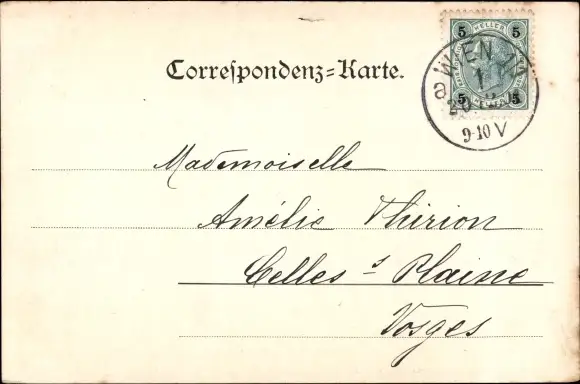 Correspondenz=Karte.
5 5
WIEN
a 1
5 5
9-10 V
Mademoiselle
Amélie Thirion
Celles s Plaine
Vosges